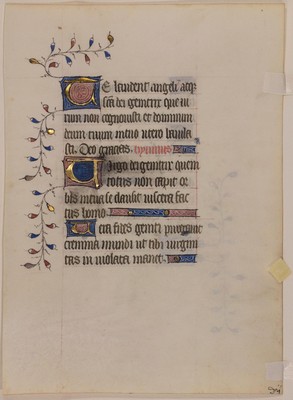 Te laudent angeli atqȝ
sc̄a dei genitrix que ui
rum non cognouisti et dominum
deum tuum in utero baiula
sti. Deo gracias.
Virgo dei genitrix quem
totus non capit or
bis in tua se clausit uiscera fac
tus homo
Uera fides geniti purgauit
crimina mundi et tibi uirgini
tas in uiolata manet.